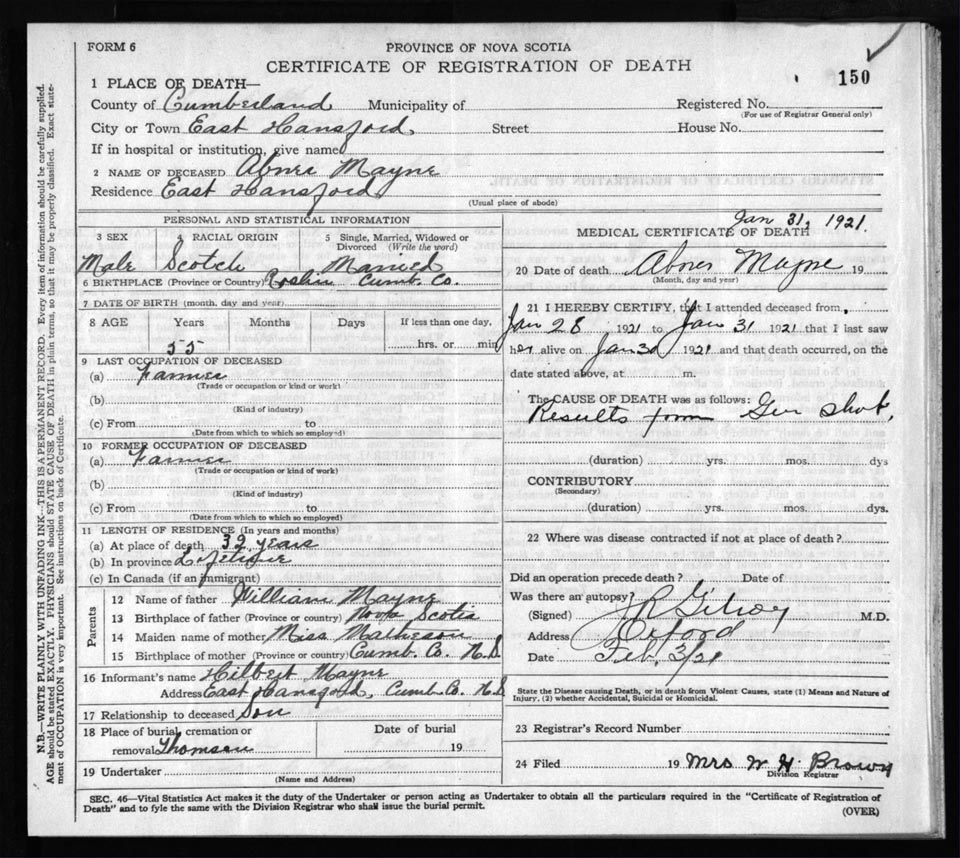 FORM 6
PROVINCE OF NOVA SCOTIA
CERTIFICATE OF REGISTRATION OF DEATH
150
1 PLACE OF DEATH—
County of Cumberland Municipality of
Registered No.
(For use of Registrar General only)
City or Town East Hansford Street House No.
If in hospital or institution, give name
2 NAME OF DECEASED Abner Mayne
Residence East Hansford
(Usual place of abode)
PERSONAL AND STATISTICAL INFORMATION
3 SEX 4 RACIAL ORIGIN 5 Single, Married, Widowed or Divorced (Write the word)
Male Scotch Married
6 BIRTHPLACE (Province or Country) Cumb. Co.
7 DATE OF BIRTH (month, day and year)
8 AGE Years Months Days If less than one day,
55 hrs. or min
9 LAST OCCUPATION OF DECEASED
(a) Farmer
(Trade or occupation or kind of work)
(b)
(Kind of industry)
(c) From to
(Date from which to which so employed)
10 FORMER OCCUPATION OF DECEASED
(a) Farmer
(Trade or occupation or kind of work)
(b)
(Kind of industry)
(c) From to
(Date from which to which so employed)
11 LENGTH OF RESIDENCE (In years and months)
(a) At place of death 32 years
(b) In province Lifetime
(c) In Canada (if an immigrant)
Parents
12 Name of father William Mayne
13 Birthplace of father (Province or country) Nova Scotia
14 Maiden name of mother Miss Matheson
15 Birthplace of mother (Province or country) Cumb. Co. N.S
16 Informant's name Hilbert Mayne
Address East Hansford, Cumb. Co. N.S
17 Relationship to deceased Son
18 Place of burial, cremation or removal Thomson
Date of burial
19
19 Undertaker
(Name and Address)
Jan 31, 1921.
MEDICAL CERTIFICATE OF DEATH
20 Date of death Abner Mayne 19
(Month, day and year)
21 I HEREBY CERTIFY, that I attended deceased from,
Jan 28, 1921 to Jan 31 1921 that I last saw
her alive on Jan 30 1921 and that death occurred, on the
date stated above, at m.
The CAUSE OF DEATH was as follows:
Results from Gun Shot,
(duration) yrs. mos. dys
CONTRIBUTORY
(Secondary)
(duration) yrs. mos. dys.
22 Where was disease contracted if not at place of death?
Did an operation precede death? Date of
Was there an autopsy?
(Signed) J R Gilroy M.D.
Address Oxford
Date Feb. 3/21
State the Disease causing Death, or in death from Violent Causes, state (1) Means and Nature of
Injury, (2) whether Accidental, Suicidal or Homicidal.
23 Registrar's Record Number
24 Filed 19 Mrs W H Brown
Division Registrar
SEC. 46—Vital Statistics Act makes it the duty of the Undertaker or person acting as Undertaker to obtain all the particulars required in the "Certificate of Registration of
Death" and to fyle the same with the Division Registrar who shall issue the burial permit.
(OVER)
N.B.—WRITE PLAINLY WITH UNFADING INK—THIS IS A PERMANENT RECORD. Every item of information should be carefully supplied.
AGE should be stated EXACTLY. PHYSICIANS should STATE CAUSE OF DEATH in plain terms, so that it may be properly classified. Exact state-
ment of OCCUPATION is very important. See instructions on back of Certificate.